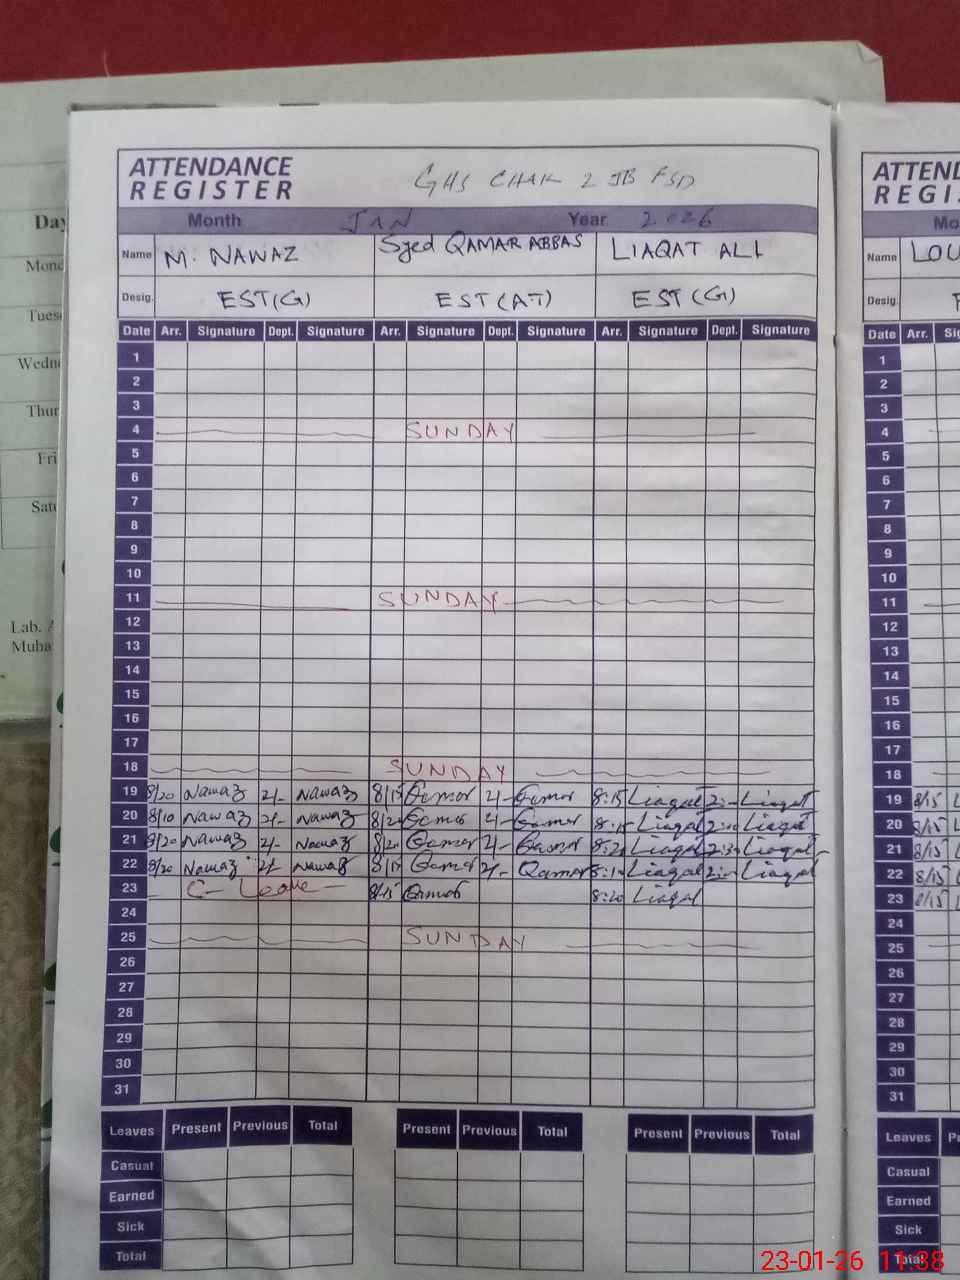 ATTENDANCE
REGISTER
GHS CHAK 2 JB FSD
Month JAN Year 2026
Name M. NAWAZ Syed QAMAR ABBAS LIAQAT ALI
Desig. EST(G) EST(AT) EST(G)
Date Arr. Signature Dept. Signature Arr. Signature Dept. Signature Arr. Signature Dept. Signature
1
2
3
4 SUNDAY
5
6
7
8
9
10
11 SUNDAY
12
13
14
15
16
17
18 SUNDAY
19 8/20 Nawaz 2/- Nawaz 8/15 Qamar 2/- Qamar 8:15 Liaqat Liaqat
20 8/10 Nawaz 2/- Nawaz 8/20 Qamar 2/- Qamar 8:15 Liaqat Liaqat
21 8/20 Nawaz 2/- Nawaz 8/20 Qamar 2/- Qamar 8:20 Liaqat Liaqat
22 8/20 Nawaz 2/- Nawaz 8/15 Qamar 2/- Qamar Liaqat Liaqat
23 C- Leave 8/15 Qamar 8:20 Liaqat
24
25 SUNDAY
26
27
28
29
30
31
Leaves Present Previous Total Present Previous Total Present Previous Total
Casual
Earned
Sick
Total
ATTEND
REGIS
Mo
Name LOU
Desig.
Date Arr. Sig
1
2
3
4
5
6
7
8
9
10
11
12
13
14
15
16
17
18
19 8/15
20 8/15
21 8/15
22 8/15
23 8/15
24
25
26
27
28
29
30
31
Leaves P
Casual
Earned
Sick
Total
Day
Mond
Tues
Wedn
Thur
Fri
Satu
Lab. A
Muba
23-01-26 11:38